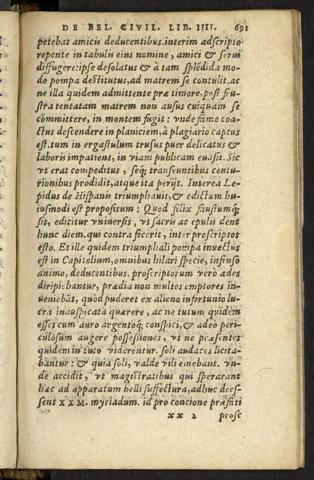 DE BEL. CIVIL. LIB. IIII. 691
petebat amicis deducentibus. interim adscripto
repente in tabulis eius nomine, amici & serui
diffugere: ipse desolatus & à tam splēdida mo
do pompa destitutus, ad matrem se contulit. ac
ne illa quidem admittente præ timore. post fru-
stra tentatam matrem non ausus cuiquam se
committere, in montem fugit: vnde fame coa-
ctus descendere in planiciem, à plagiario captus
est. tum in ergastulum trusus puer delicatus &
laboris impatiens, in viam publicam euasit. Sic
vt erat compeditus, seq; transeuntibus centu-
rionibus prodidit, atque ita perijt. Interea Le-
pidus de Hispanis triumphauit, & edictum hu
iusmodi est propositum: Quod fœlix faustumq́;
sit, edicitur vniuersis, vt sacris ac epulis dent
hunc diem, qui contra fecerit, inter proscriptos
esto. Et ille quidem triumphali pompa inuectus
est in Capitolium, omnibus hilari specie, infenso
animo, deducentibus. proscriptorum verò ædes
diripiebantur, prædia non multos emptores in-
ueniebāt, quòd puderet ex alieno infortunio lu-
cra inauspicata quærere, ac ne tutum quidem
esset cum auro argentoq́; conspici, & adeo peri-
culosum augere possessiones, vt ne præsentes
quidem in tuto viderentur. soli audaces licita-
bantur: & quia soli, valde vili emebant. vn-
de accidit, vt magistratibus qui sperarant
hæc ad apparatum belli suffectura, adhuc dees-
sent XXM. myriadum. id pro concione præfati
xx 2 prosc